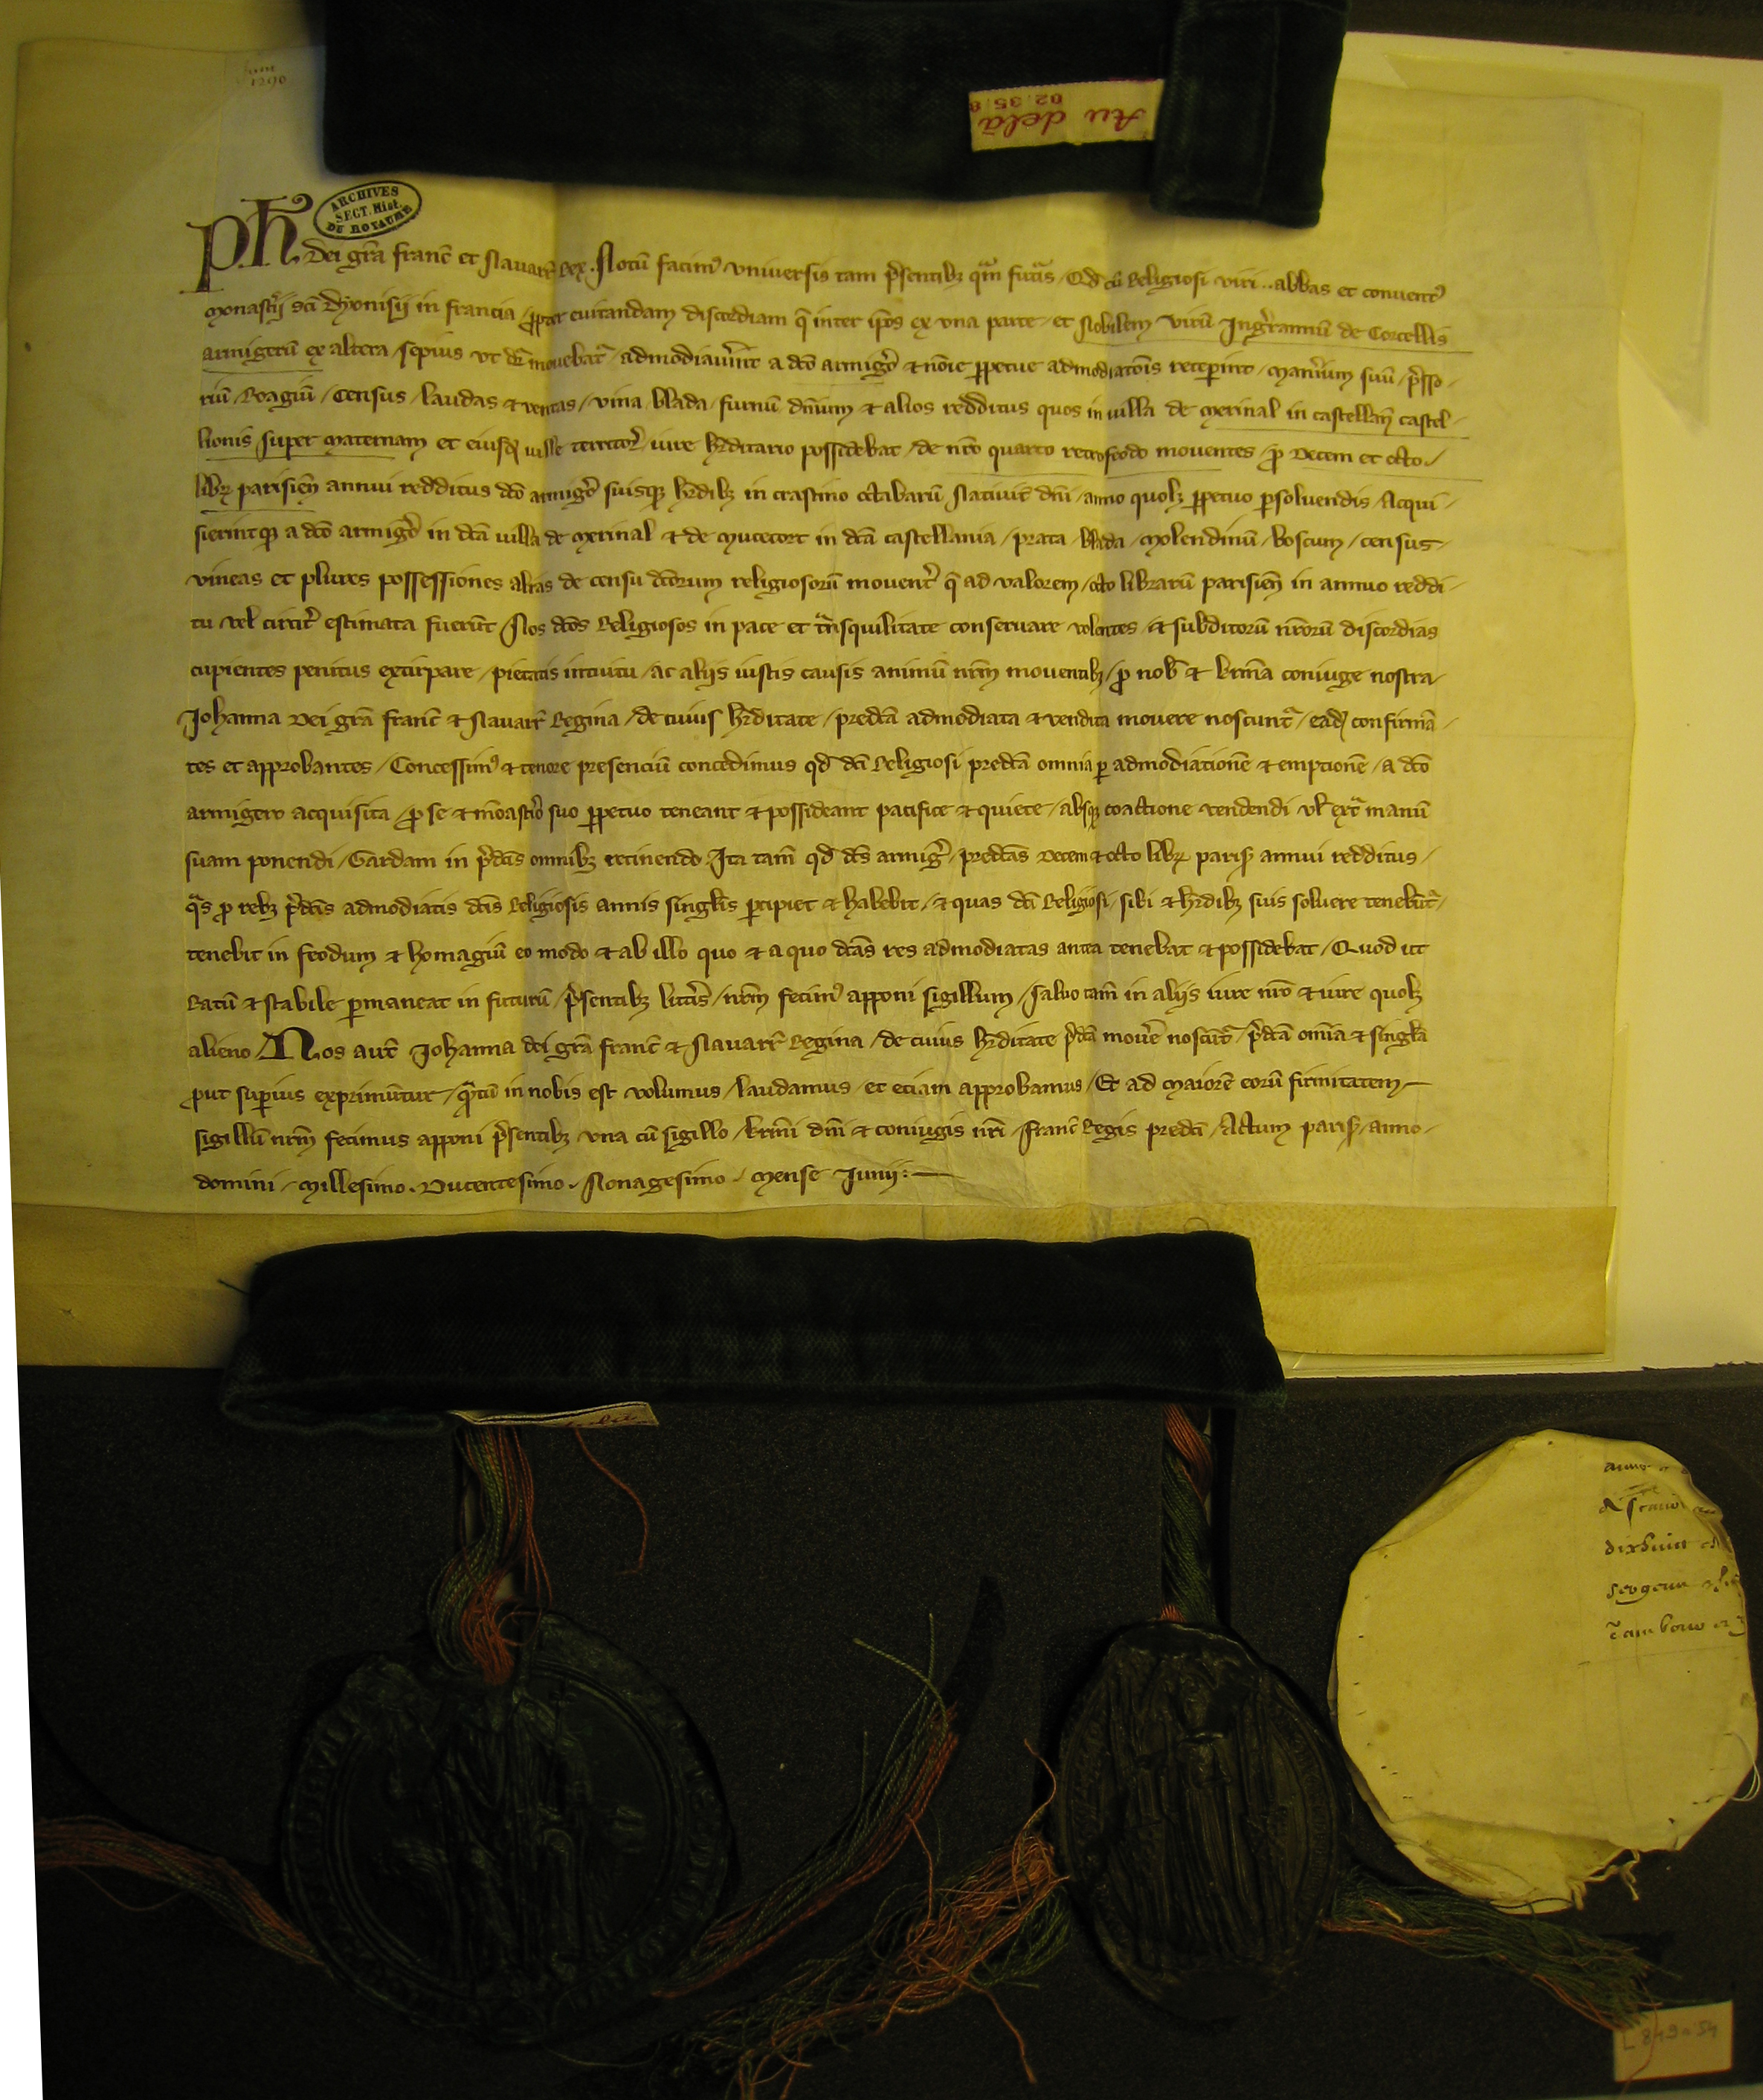 Juni
1290
Au delà
02.35.
ARCHIVES
SECT. Hist.
DU ROYAUME
Ph. dei gr̃a franc̃ et Nauarr̃ Rex. Notũ facimꝰ vniuersis tam p̃sentibꝫ qͣm futͥs / Qđ cũ Religiosi viri .. abbas et conuentꝰ
monastẽii sc̃i Dyonisij in francia / ꝓpter euitandam discordiam q̃ inter ip̃os ex vna parte / et Nobilem virũ Ingẽrannũ de Corcellis
armigerũ ex altera / sepius vt dr̃ mouebat̃ / admodiauerĩt a dc̃o armigẽo ⁊ nõie ꝑpetue admodiatõis receperint / manẽium suũ / p̃sso-
riũ / Roagiũ / Census / laudas ⁊ ventas / vina / blada / furnũ / dñium ⁊ alios redditus quos in villa de Merinal in castellañ castel-
lionis super Maternam et eiusdꝫ ville territor̃ iure hẽditario possidebat / de nr̃o quarto retrofeodo mouentes / ꝓ decem et octo /
libꝝ parisień annui redditus dc̃o armigẽo suisqꝫ hẽdibꝫ in crastino octabarũ Natiuit̃ dñi / anno quolꝫ ꝑpetuo ꝑsoluendis / Acqui-
sierintqꝫ a dc̃o armigẽo in dc̃a villa de Merinal ⁊ de Mucecort in dc̃a castellania / prata / blada / molendinũ / boscum / census
vineas et plures possessiones alias de censu dc̃orum religiosorũ mouent̃ q̃ ad valorem / octo librarũ parisień in annuo reddi-
tu vel circit̃ estimata fuerũt / Nos dc̃os Religiosos in pace et tͣnsquilitate conseruare volentes / et subditorũ nr̃orũ discordias
cupientes penitus extirpare / pietatis intuitu / ac alijs iustis causis animũ nr̃m mouentibꝫ / ꝓ nob̃ ⁊ kr̃ma coniuge nostra /
Johanna dei gr̃a franc̃ ⁊ Nauarr̃ Regina / de cuius hẽditate / predc̃a admodiata ⁊ vendita mouere noscunt̃ / eadꝫ confirmã-
tes et approbantes / Concessimꝰ ⁊ tenore presenciũ concedimus qđ dc̃i Religiosi predc̃a omnia ꝑ admodiationẽ ⁊ emptionẽ / a dc̃o
armigero acquisita / ꝓ se ⁊ mõastẽio suo ꝑpetuo teneant ⁊ possideant pacifice ⁊ quiete / absqꝫ coactione vendendi vl̃ extͣ manũ
suam ponendi / Gardam in p̃dc̃is omnibꝫ retinendo. Ita tam̃ qđ dc̃s armigẽ / predc̃as decem ⁊ octo libꝝ paris̃ annui redditus /
qͣs ꝓ rebꝫ p̃dc̃is admodiatis dc̃is Religiosis annis singl̃is ꝑcipiet ⁊ habebit / ⁊ quas dc̃i Religiosi / sibi ⁊ hẽdibꝫ suis soluere tenebũt̃ /
tenebit in feodum ⁊ homagiũ eo modo ⁊ ab illo quo ⁊ a quo dc̃as res admodiatas antea tenebat ⁊ possidebat / Quod ut
Ratũ ⁊ stabile ꝑmaneat in futurũ / p̃sentibꝫ litt̃is / nr̃m fecimꝰ apponi sigillum / saluo tam̃ in alijs iure nr̃o ⁊ iure quolꝫ
alieno / Nos aut̃ Johanna dei gr̃a franc̃ ⁊ Nauarr̃ Regina / de cuius hẽditate p̃dc̃a mouẽe noscũt̃ / p̃dc̃a om̃ia ⁊ singl̃a
ꝓut suꝑius exprimũtur / qͣtũ in nobis est volumus / laudamus / et etiam approbamus / Et ad maiorẽ eorũ firmitatem /
sigillũ nr̃m fecimus apponi p̃sentibꝫ vna cũ sigillo / kr̃mi dñi ⁊ coniugis nr̃i / franc̃ Regis predc̃i / Actum paris̃ / anno /
domini / Millesimo. Ducentesimo. Nonagesimo / mense Junij :
dixhuict
L 849 n° 54